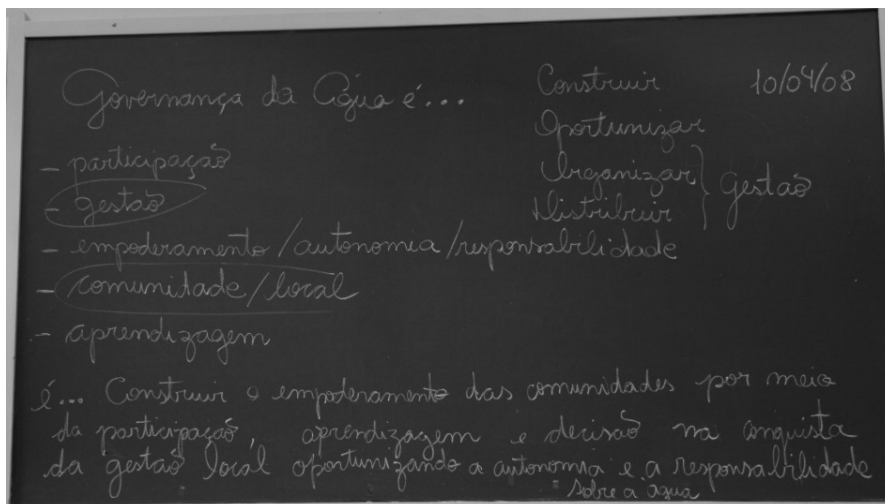 Governança da Água é...
- participação
- gestão
- empoderamento/autonomia/responsabilidade
- comunidade/local
- aprendizagem
Construir
Oportunizar
Organizar
Distribuir
Gestão
10/04/08
é... Construir o empoderamento das comunidades por meio
da participação, aprendizagem e decisão na conquista
da gestão local oportunizando a autonomia e a responsabilidade
sobre a água